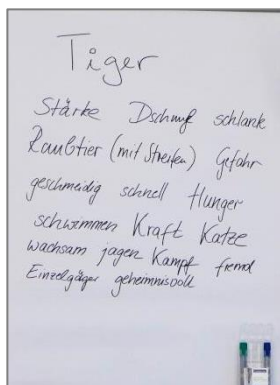 Tiger
Stärke Dschungel schlank
Raubtier (mit Streifen) Gefahr
geschmeidig schnell Hunger
schwimmen Kraft Katze
wachsam jagen Kampf fremd
Einzelgänger geheimnisvoll